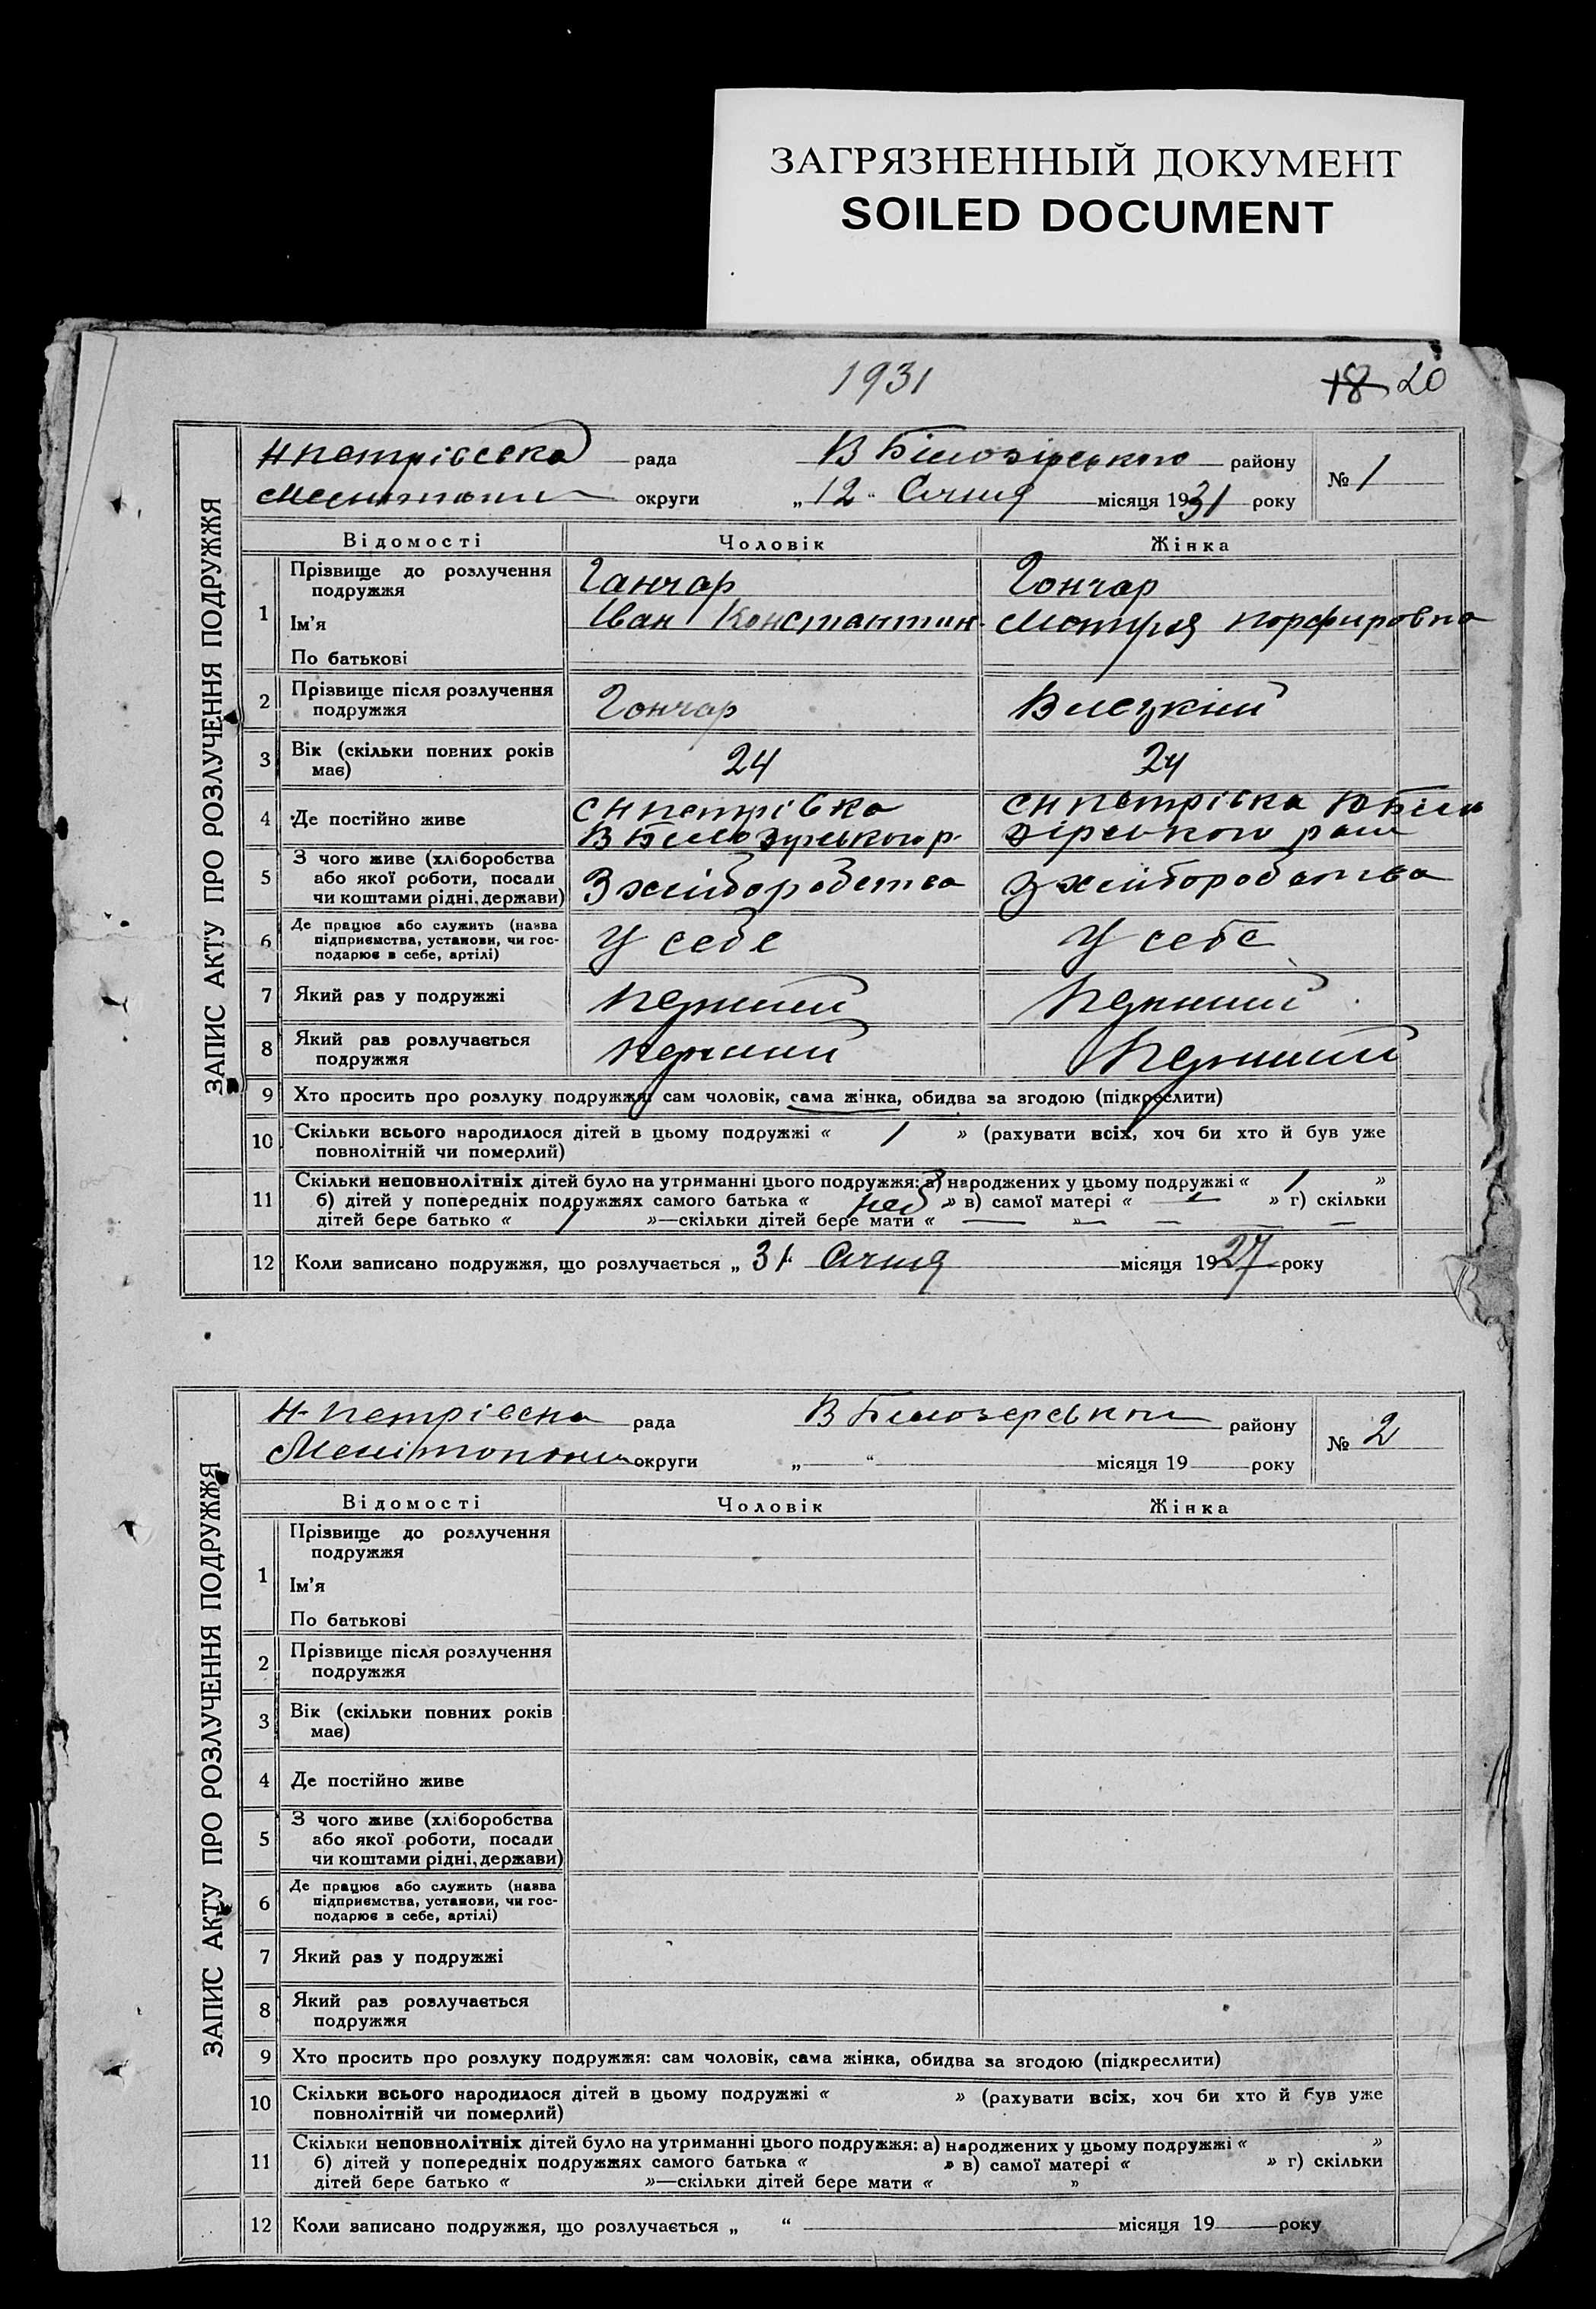 ЗАГРЯЗНЕННЫЙ ДОКУМЕНТ
SOILED DOCUMENT
1931
18 20
ЗАПИС АКТУ ПРО РОЗЛУЧЕННЯ ПОДРУЖЖЯ
Н петрівська рада В Білозірського району № 1
округи „12“ Січня місяця 1931 року
Відомості Чоловік Жінка
1 Прізвище до розлучення Ганчар Гончар
подружжя
Ім’я Іван Константин Мотря Порфировна
По батькові
2 Прізвище після розлучення Гончар
подружжя
3 Вік (скільки повних років 24 24
має)
4 Де постійно живе с Н петрівка с Н петрівка В Біло
В Білозірського р. зірського рай
5 З чого живе (хліборобства З хліборобства З хліборобства
або якої роботи, посади
чи коштами рідні, держави)
6 Де працює або служить (назва У себе У себе
підприємства, установи, чи гос-
подарює в себе, артілі)
7 Який раз у подружжі Перший Перший
8 Який раз розлучається перший Перший
подружжя
9 Хто просить про розлуку подружжя: сам чоловік, сама жінка, обидва за згодою (підкреслити)
10 Скільки всього народилося дітей в цьому подружжі « 1 » (рахувати всіх, хоч би хто й був уже
повнолітній чи померлий)
11 Скільки неповнолітніх дітей було на утриманні цього подружжя: а) народжених у цьому подружжі « 1 »
б) дітей у попередніх подружжях самого батька « » в) самої матері « — » г) скільки
дітей бере батько « 1 »—скільки дітей бере мати « — »
12 Коли записано подружжя, що розлучається „31“ Січня місяця 1927 року
ЗАПИС АКТУ ПРО РОЗЛУЧЕННЯ ПОДРУЖЖЯ
Н-петрівська рада В Білозерського району № 2
округи „ “ місяця 19 року
Відомості Чоловік Жінка
1 Прізвище до розлучення
подружжя
Ім’я
По батькові
2 Прізвище після розлучення
подружжя
3 Вік (скільки повних років
має)
4 Де постійно живе
5 З чого живе (хліборобства
або якої роботи, посади
чи коштами рідні, держави)
6 Де працює або служить (назва
підприємства, установи, чи гос-
подарює в себе, артілі)
7 Який раз у подружжі
8 Який раз розлучається
подружжя
9 Хто просить про розлуку подружжя: сам чоловік, сама жінка, обидва за згодою (підкреслити)
10 Скільки всього народилося дітей в цьому подружжі « » (рахувати всіх, хоч би хто й був уже
повнолітній чи померлий)
11 Скільки неповнолітніх дітей було на утриманні цього подружжя: а) народжених у цьому подружжі « »
б) дітей у попередніх подружжях самого батька « » в) самої матері « » г) скільки
дітей бере батько « »—скільки дітей бере мати « »
12 Коли записано подружжя, що розлучається „ “ місяця 19 року